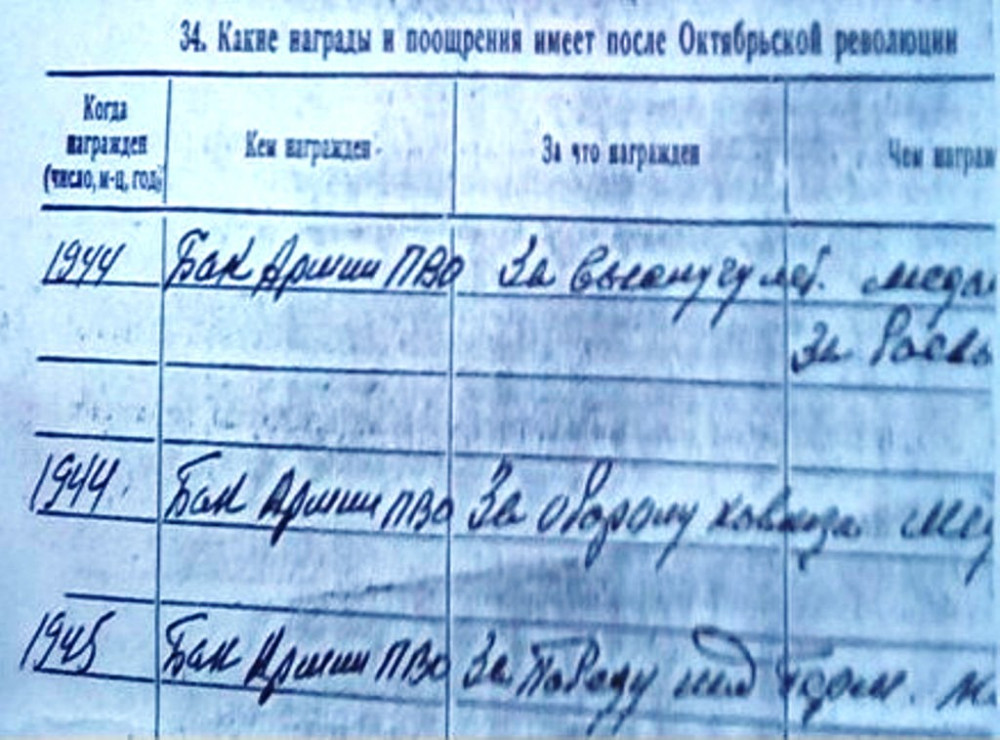 34. Какие награды и поощрения имеет после Октябрьской революции
Когда награжден (число, м-ц, год)
Кем награжден
За что награжден
Чем награж
1944 Бак Армии ПВО За выслугу лет. меда
За
1944. Бак Армии ПВО За оборону Кавказа. Мед
1945 Бак Армии ПВО За Победу над Герм. м